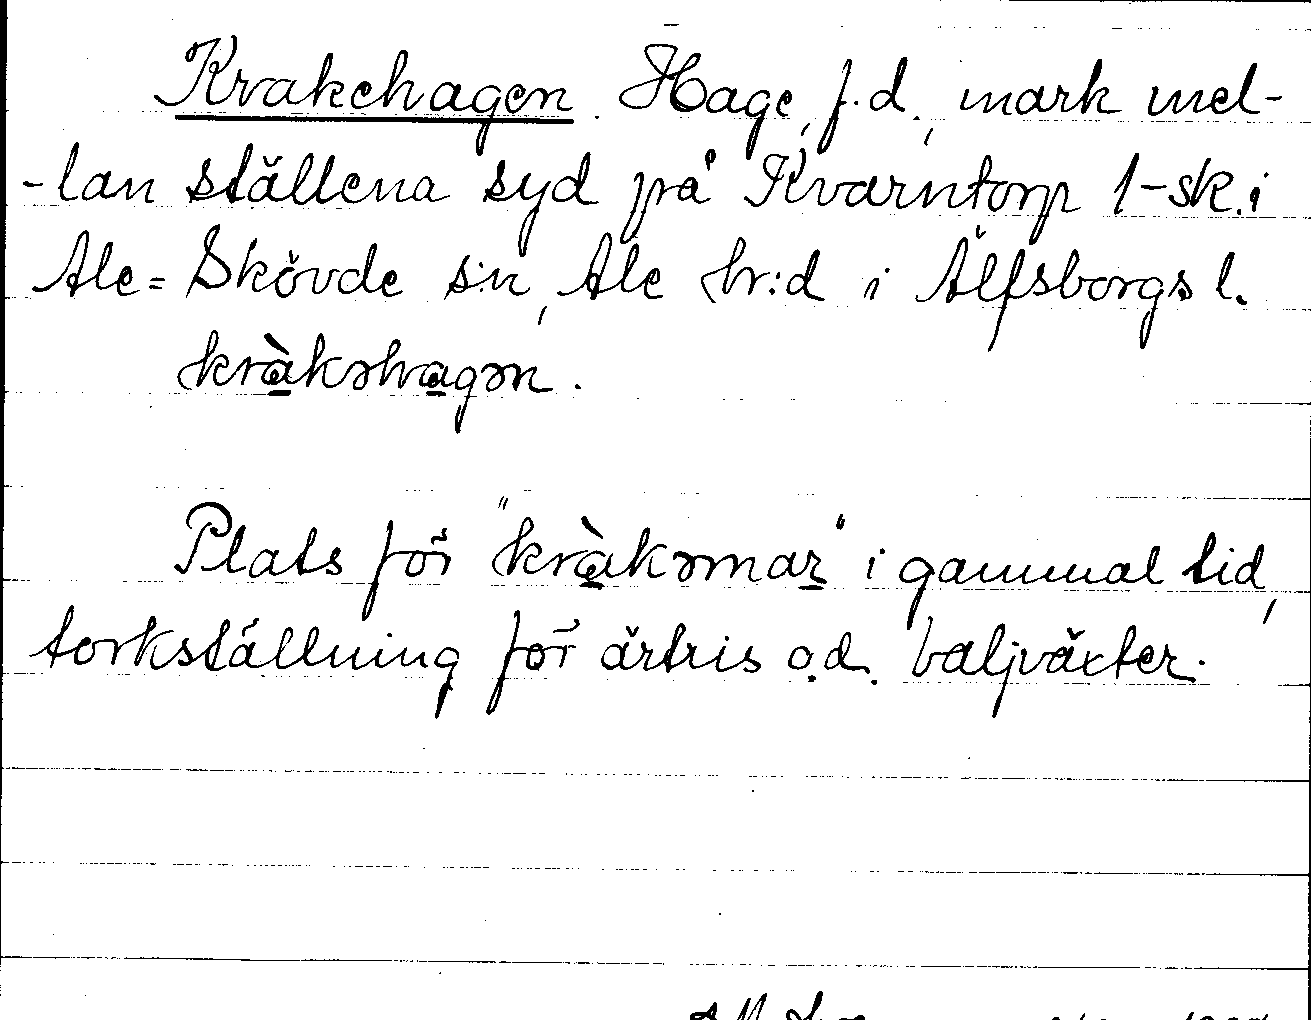 Krakehagen. Hage, f.d., mark mel-
-lan ställena syd på Kvarntorp 1-sk. i
Ale=Skövde s:n, Ale hr:d i Älfsborgs l.
kràkəhagən.
Plats för "kràkəmar" i gammal tid,
torkställning för ärtris o.d. baljväxter.